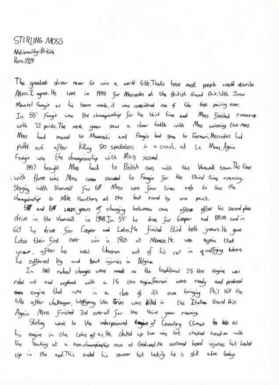 STIRLING MOSS
Nationality: British
Born: 1929
The greatest driver never to win a world title. That's how most people would describe
Moss. I agree. He won in 1955 for Mercedes at the British Grand Prix. With Juan
Manuel Fangio as his team mate, it was considered one of the best pairing ever.
In 55' Fangio won the championship for the third time and Moss finished runner-up
with 23 points. The next year saw a close battle with Moss winning two races
Moss had moved to Maserati and Fangio had gone to Ferrari. Mercedes had
pulled out after killing 80 spectators in a crash at Le Mans. Again
Fangio won the championship with Moss second.
1957 brought Moss back to British cars with the Vanwall team. The
with three wins Moss came second to Fangio for the third time running.
Staying with Vanwall for 58' Moss won four times only to lose the
championship to Mike Hawthorn at the last round by one point.
59' and 60' were years of changing between cars after his second place
drive in the Vanwall in 1958. In 59' he drove for Cooper and BRM and in
60' he drove for Cooper and Lotus. He finished third both years. He gave
Lotus their first ever win in 1960 at Monaco. He was again that
year, after he was thrown out of his car in qualifying where
he suffered leg and back injuries in Belgium.
In 1961 radical changes were made as the traditional 2.5 litre engine was
ruled out and replaced with a 1.5 litre engine. Ferrari were ready and produced
engine that were in a class of its own bringing Phil Hill the
title after challenger, Wolfgang Von Trips was killed in the Italian Grand Prix.
Again Moss finished 3rd overall for the third year running.
Stirling went to the underpowered engine of Coventry Climax to take as
his engine in the Lotus of 61. He chalked up two wins but crashed
the Tuesday at a non-championship race at Goodwood. He sustained injuries but
up in the end. This ended his career but luckily he is still alive today.